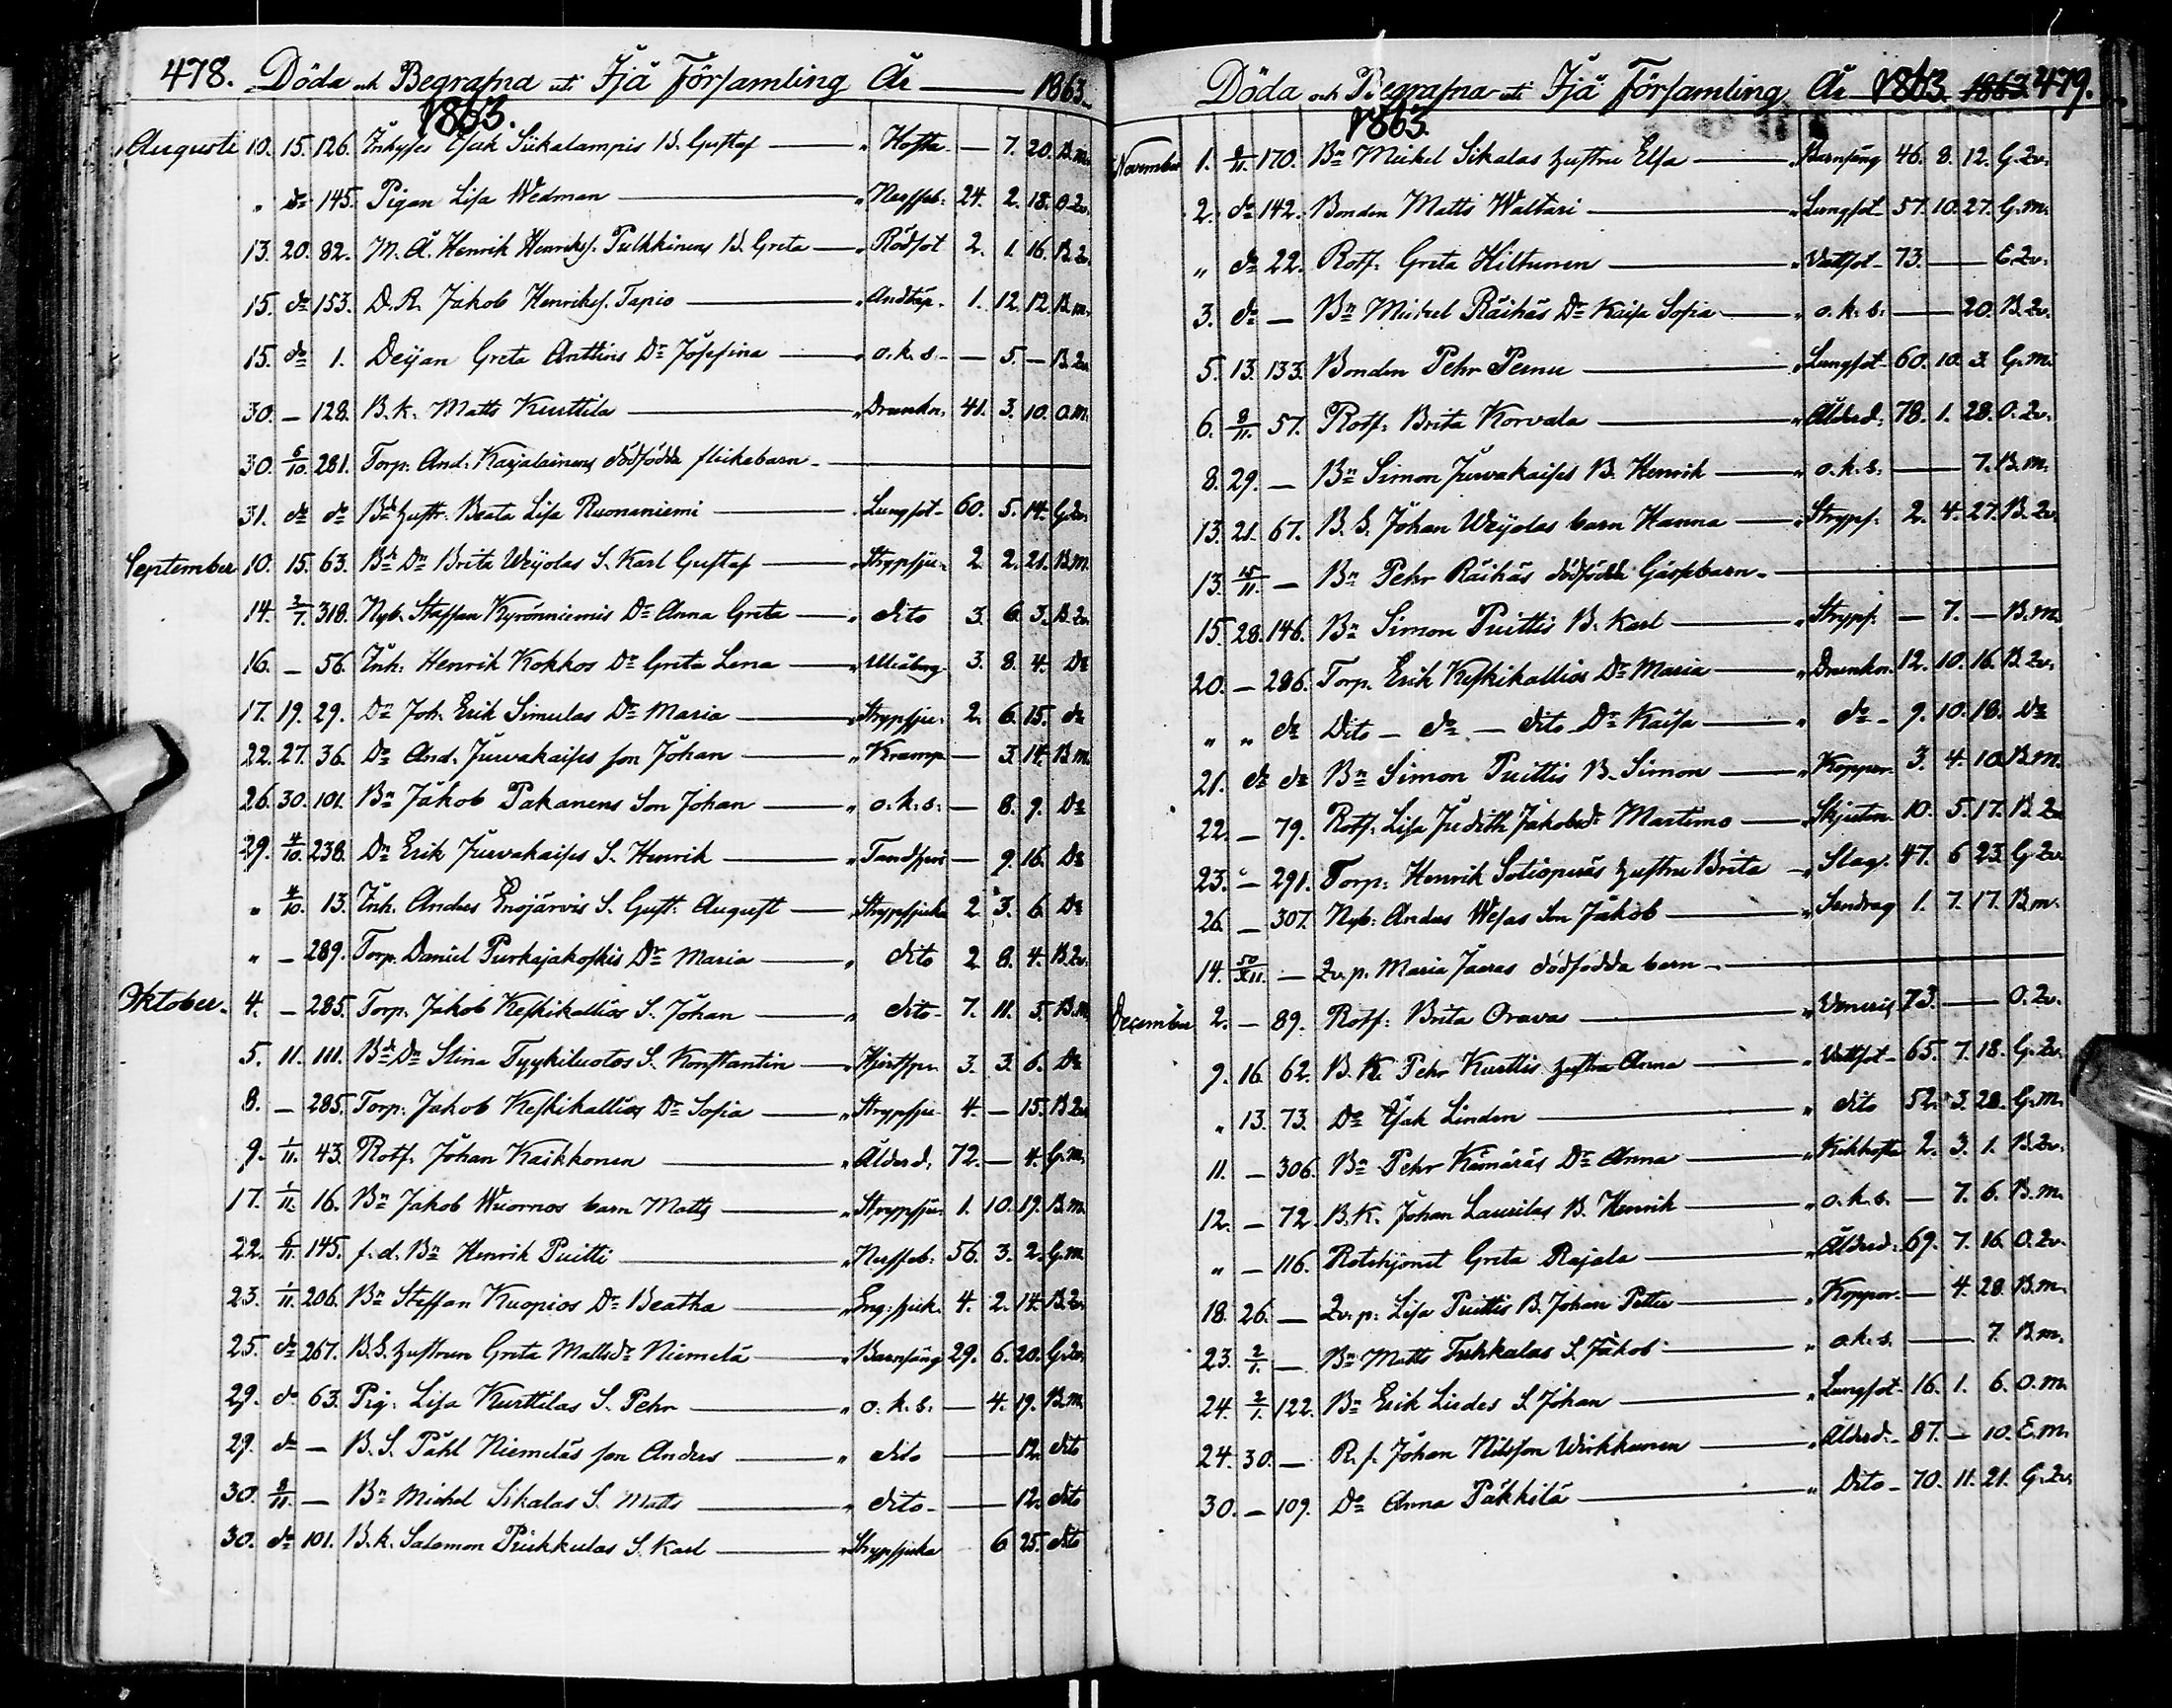 478. Döda och Begrafna uti Ijå Församling År 1863.
1863.
Augusti 10. 15. 126. Inhyses Isak Siikalampis B. Gustaf — " Hosta — 7. 20. B.m.
" do 145. Pigan Lisa Wedman — " Nerffeb. 24. 2. 18. O.Qv.
13. 20. 82. M. Å. Henrik Henrikss. Pulkkinens B. Greta — " Rödsot 2. 1. 16. B.Qv.
15. do 153. D.R. Jakob Henrikss. Tapio — " Andtäp. 1. 12. 12. B.m.
15. do 1. Deijan Greta Anttins Dr Josefina — " o.k.s. — 5. — B.Qv.
30. — 128. B.k. Matts Kurttila — " Drunkn. 41. 3. 10. O.m.
30. 6/10. 281. Torp. And. Karjalainens dödfödda flickebarn —
31. do do Bd hustr. Beata Lisa Ruonaniemi — Lungsot 60. 5. 14. G.Qv.
September 10. 15. 63. Bde Dr Brita Weijolas S. Karl Gustaf — " Strypsju. 2 2. 21. B.m.
14. 2/7. 318. Nyb. Staffan Kyrönniemis Dr Anna Greta — " dito 3. 6. 3. B.Qv.
16. — 56. Inh. Henrik Kokkos Dr Greta Lena — " Uleåborg 3. 8. 4. Do
17. 19. 29. Dn Joh. Erik Simulas Dr Maria — " Strypsju. 2. 6. 15. do
22. 27. 36. Do And. Jurvakaises son Johan — " Kramp — 3. 14. B.m.
26. 30. 101. Bn Jakob Pakanens Son Johan — " o.k.s. — 8. 9. Do
29. 4/10. 238. Dn Erik Jurvakaises S. Henrik — " — 9. 16. Do
" 4/10. 13. Inh. Anders Enojärvis S. Gust. August — " Strypsjuka 2 3. 6. Do
" — 289. Torp. Daniel Purkajakoskis Dr Maria — " dito 2 8. 4. B.Qv.
Oktober. 4. — 285. Torp. Jakob Keskikallios S. Johan — " dito 7. 11. 5. B.m.
5. 11. 111. Bde Dr Stina Tyykiluotos S. Konstantin — " 3. 3. 6. Do
8. — 285. Torp. Jakob Keskikallios Dr Sofia — " Strypsju. 4. — 15. B.Qv.
9. 1/11. 43. Rotf. Johan Kaikkonen — " Ålderd. 72. — 4. G.m.
17. 1/11. 16. Bn Jakob Wuornos barn Matts — " Strypsju. 1. 10. 19. B.m.
22. 6/11. 145. f.d. Bn Henrik Puitti — " Nerffeb. 56. 3. 2. G.m.
23. 1/11. 206. Bn Steffan Kuopios Dr Beatha — " Eng. sjuk. 4. 2. 14. B.Qv.
25. do 267. B.S. hustrun Greta Mattsdr Niemelä — " Barnsäng 29. 6. 20. G.Qv.
29. do 63. Pig. Lisa Kurttilas S. Pehr — " o.k.s. — 4. 19. B.m.
29. do — B.S. Påhl Niemeläs son Anders — " dito — 12. dito
30. 8/11. — Bn Michel Sikalas S. Matts — " dito — 12. dito
30. do 101. B.k. Salomon Pirkkulas S. Karl — " Strypsjuka 6 25. dito
Döda och Begrafna uti Ijå Församling År 1863. 1863. 479.
1863
November 1. 8/11. 170. Bn Mickel Sikalas hustru Elsa — " Barnsäng 46. 8. 12. G.Qv.
2. do 142. Bonden Matts Waltari — " Lungsot 57. 10. 27. G.m.
" do 22. Rotf. Greta Hiltunen — " Vattsot 73. — E.Qv.
3. do — Bn Mickel Räihäs Dr Kaisa Sofia — " o.k.s. — 20. B.Qv.
5. 13. 133. Bonden Pehr Pernu — " Lungsot 60. 10. 3. G.m.
6. 8/11. 57. Rotf. Brita Korvala — " Ålderd. 78. 1. 28. O.Qv.
8. 29. — Bn Simon Jurvakaises B. Henrik — " o.k.s. — 7. B.m.
13. 21. 67. B.S. Johan Weijolas barn Hanna — " Strypf. 2. 4. 27. B.Qv.
13. 15/11. — Bn Pehr Räihäs dödfödda Gåssbarn —
15. 28. 146. Bn Simon Puittis B. Karl — " Strypf. — 7. — B.m.
20. — 286. Torp. Erik Keskikallios Dr Maria — " Drunkn. 12. 10. 16. B.Qv.
" " do Dito — do — dito Dr Kaisa — " do 9. 10. 18. Do
21. do do Bn Simon Puittis B. Simon — " Koppor 3. 4. 10. B.m.
22. — 79. Rotf. Lisa Judith Jakobsdr Martimo — " Skjuten 10. 5. 17. B.Qv.
23. — 291. Torp. Henrik Sotioperäs hustru Brita — " Slag. 47. 6 23. G.Qv.
26. — 307. Nyb. Anders Wesas Son Jakob — " Sendrag 1. 7. 17. B.m.
14. — Qv.p. Maria Jaaras dödfödda barn —
December 2. — 89. Rotf. Brita Oravas — " Veneris 73. — O.Qv.
9. 16. 62. B.K. Pehr Kurttis hustru Anna — " Vattsot 65. 7. 18. G.Qv.
" 13. 73. Do Isak Linden — " dito 52. 3. 28. G.m.
11. — 306. Bn Pehr Kämäräs Dr Anna — " Kikhosta 2. 3. 1. B.Qv.
12. — 72. B.K. Johan Laurilas B. Henrik — " o.k.s. — 7. 6. B.m.
" — 116. Rotehjonet Greta Rajala — " Ålderd. 69. 7. 16. O.Qv.
18. 26. — Qv.p. Lisa Puittis B. Johan Petter — " Koppor — 4. 28. B.m.
23. 2/1. — Bn Matts Tukkalas S. Jakob — " o.k.s. — 7. B.m.
24. 2/1. 122. Bn Erik Liedes S. Johan — " Lungsot 16. 1. 6. O.m.
24. 30. — R.f. Johan Nilsson Wirkkunen — " Ålderd. 87. — 10. E.m.
30. — 109. Do Anna Päkkilä — " Dito 70. 11. 21. G.Qv.